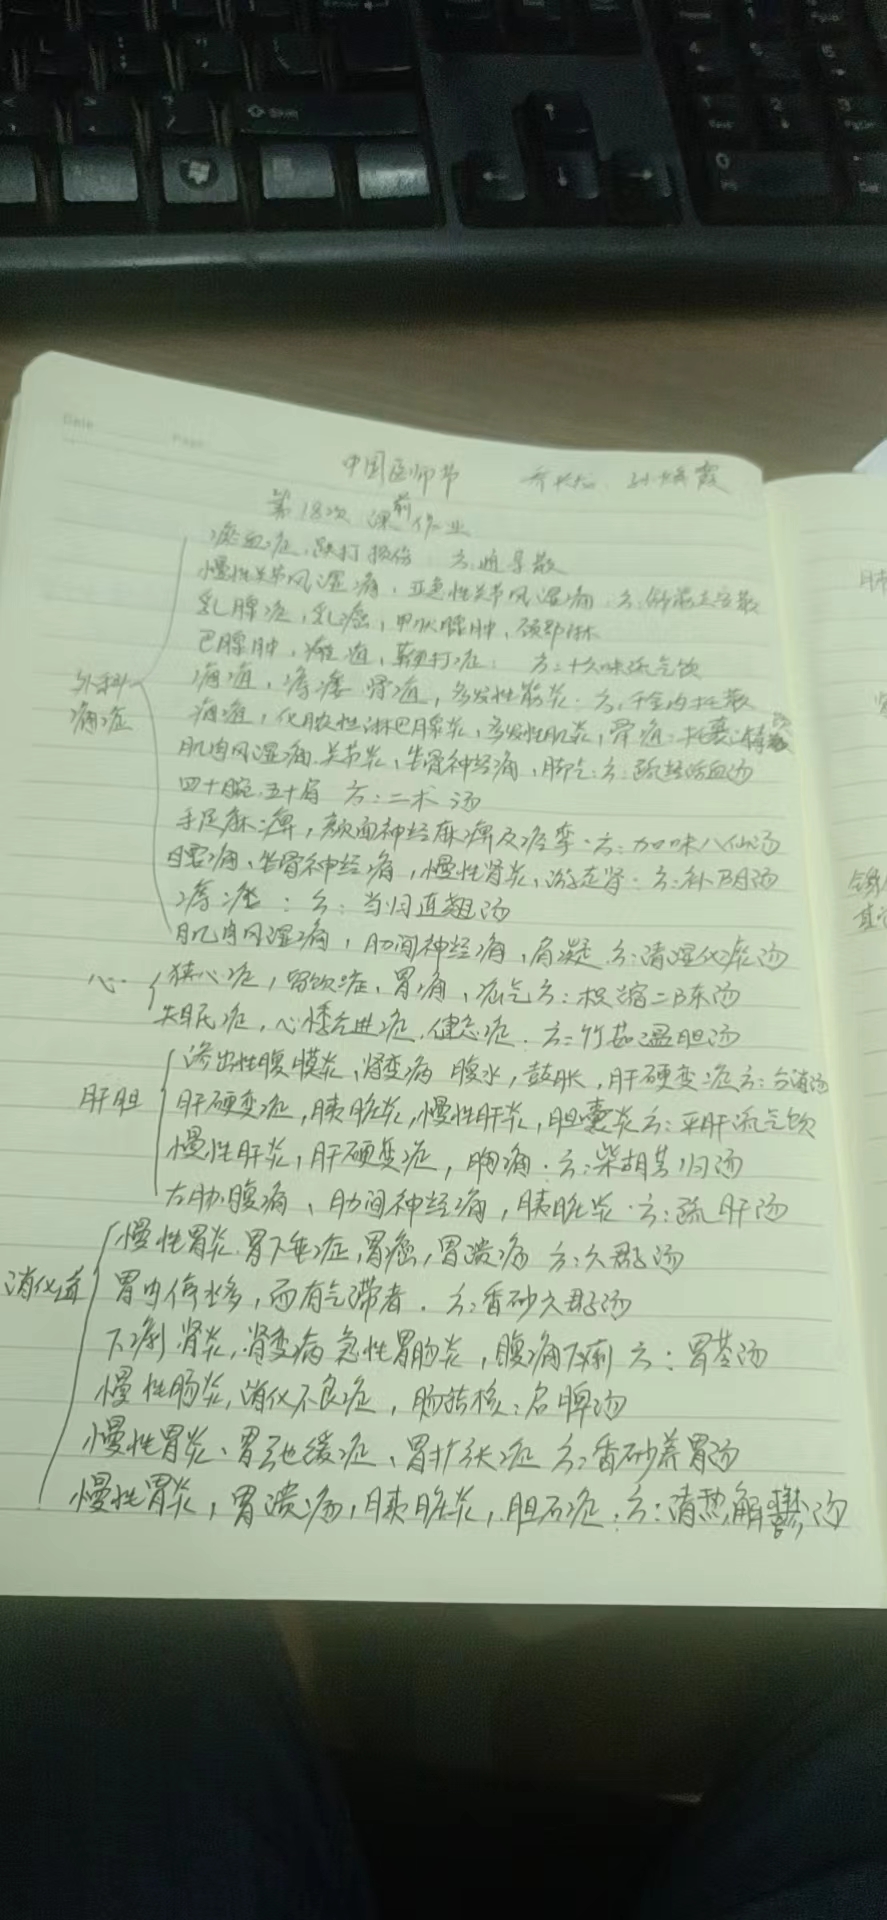 Date Page
中国医师节
第18次 课前作业
瘀血症、跌打损伤 方:通导散
慢性关节风湿痛、亚急性关节风湿痛 方:
乳腺症,乳癌,甲状腺肿,
巴腺肿,鞭打症: 方:十六味流气饮
骨疽,多发性筋炎. 方:千金内托散
化脓性淋巴腺炎,多发性肌炎,
肌肉风湿痛、关节炎,坐骨神经痛,脚气:方:疏经活血汤
四十腕、五十肩 方:二术汤
手足麻痹,颜面神经麻痹及痉挛. 方:加味八仙汤
腰痛、坐骨神经痛,慢性肾炎,游走肾. 方:补阴汤
方:当归连翘汤
肌肉风湿痛,肋间神经痛,肩凝 方:清湿化痰汤
外科
痛症
狭心症,留饮症、胃痛,疝气方:枳缩二陈汤
失眠症,心悸亢进症、健忘症. 方:竹茹温胆汤
心
渗出性腹膜炎,肾变病 腹水,鼓胀,肝硬变症方:分消汤
肝硬变症,胰脏炎,慢性肝炎,胆囊炎方:平肝流气饮
慢性肝炎,肝硬变症,胸痛. 方:柴胡芎归汤
右肋腹痛、肋间神经痛,胰脏炎. 方:疏肝汤
肝胆
慢性胃炎、胃下垂症,胃癌,胃溃疡 方:六君子汤
胃内停水多,而有气滞者. 方:香砂六君子汤
下痢 肾炎,肾变病 急性胃肠炎,腹痛下痢 方:胃苓汤
慢性肠炎,消化不良症,肠结核:启脾汤
慢性胃炎、胃弛缓症、胃扩张症 方:香砂养胃汤
慢性胃炎,胃溃疡,胰脏炎,胆石症. 方:清热解郁汤
消化道